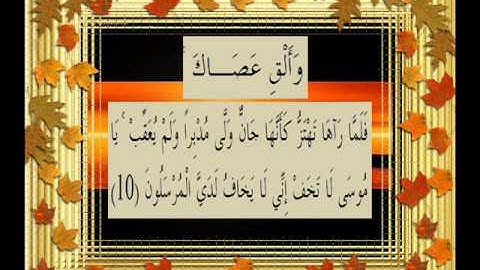 وَأَلْقِ عَصَـــاكَ ۚ
فَلَمَّا رَآهَا تَهْتَزُّ كَأَنَّهَا جَانٌّ وَلَّى مُدْبِراً وَلَمْ يُعَقِّبْ ۚ يَا
مُوسَى لَا تَخَفْ إِنِّي لَا يَخَافُ لَدَيَّ الْمُرْسَلُونَ (10)